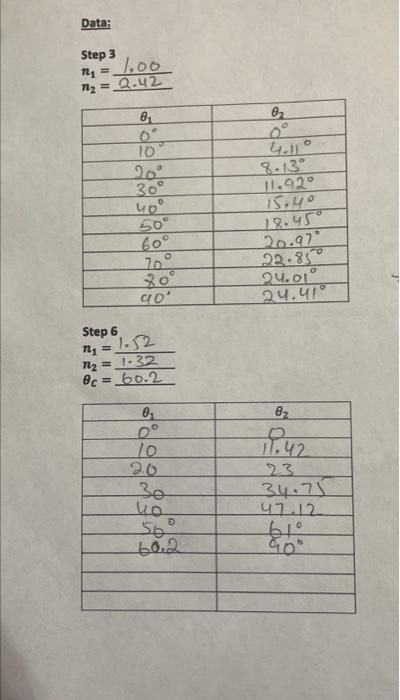 Data:
Step 3
n₁ = 1.00
n₂ = 2.42
θ₁ θ₂
0° 0°
10° 4.11°
20° 8.13°
30° 11.92°
40° 15.4°
50° 18.45°
60° 20.97°
70° 22.85°
80° 24.01°
90° 24.41°
Step 6
n₁ = 1.52
n₂ = 1.32
θC = 60.2
θ₁ θ₂
0° 0
10 11.42
20 23
30 34.75
40 47.12
50° 61°
60.2 90°